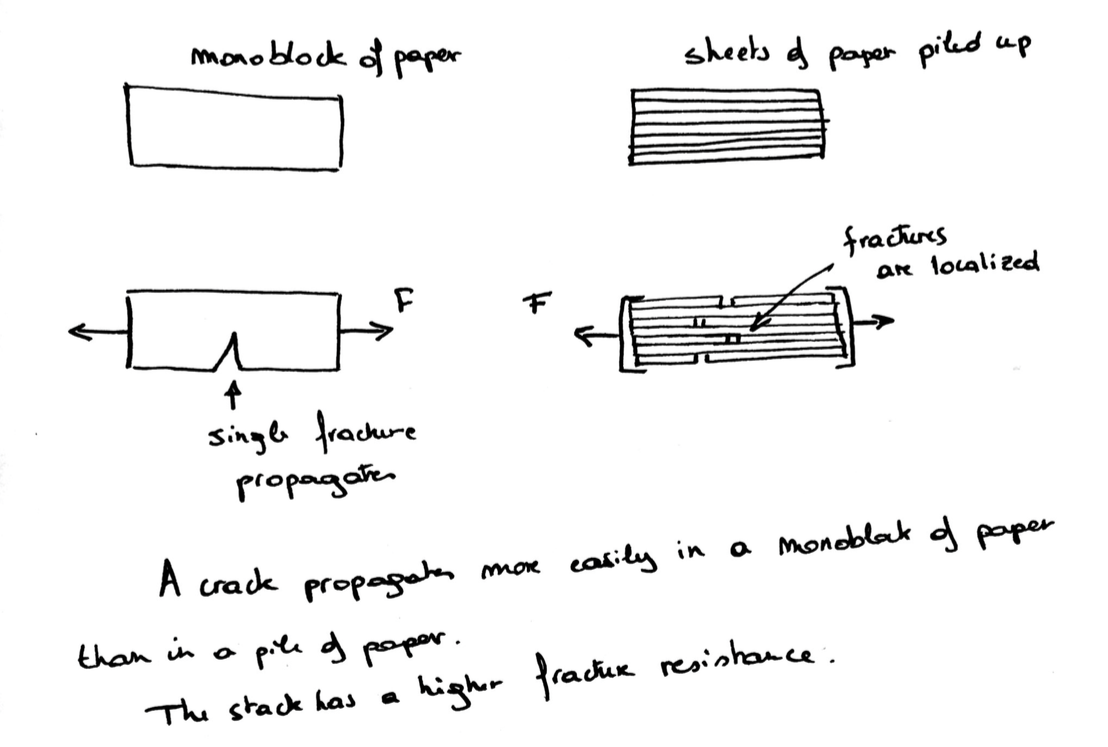 monoblock of paper
sheets of paper piled up
fractures
are localized
F
F
single fracture
propagates
A crack propagates more easily in a monoblock of paper
than in a pile of paper.
The stack has a higher fracture resistance.